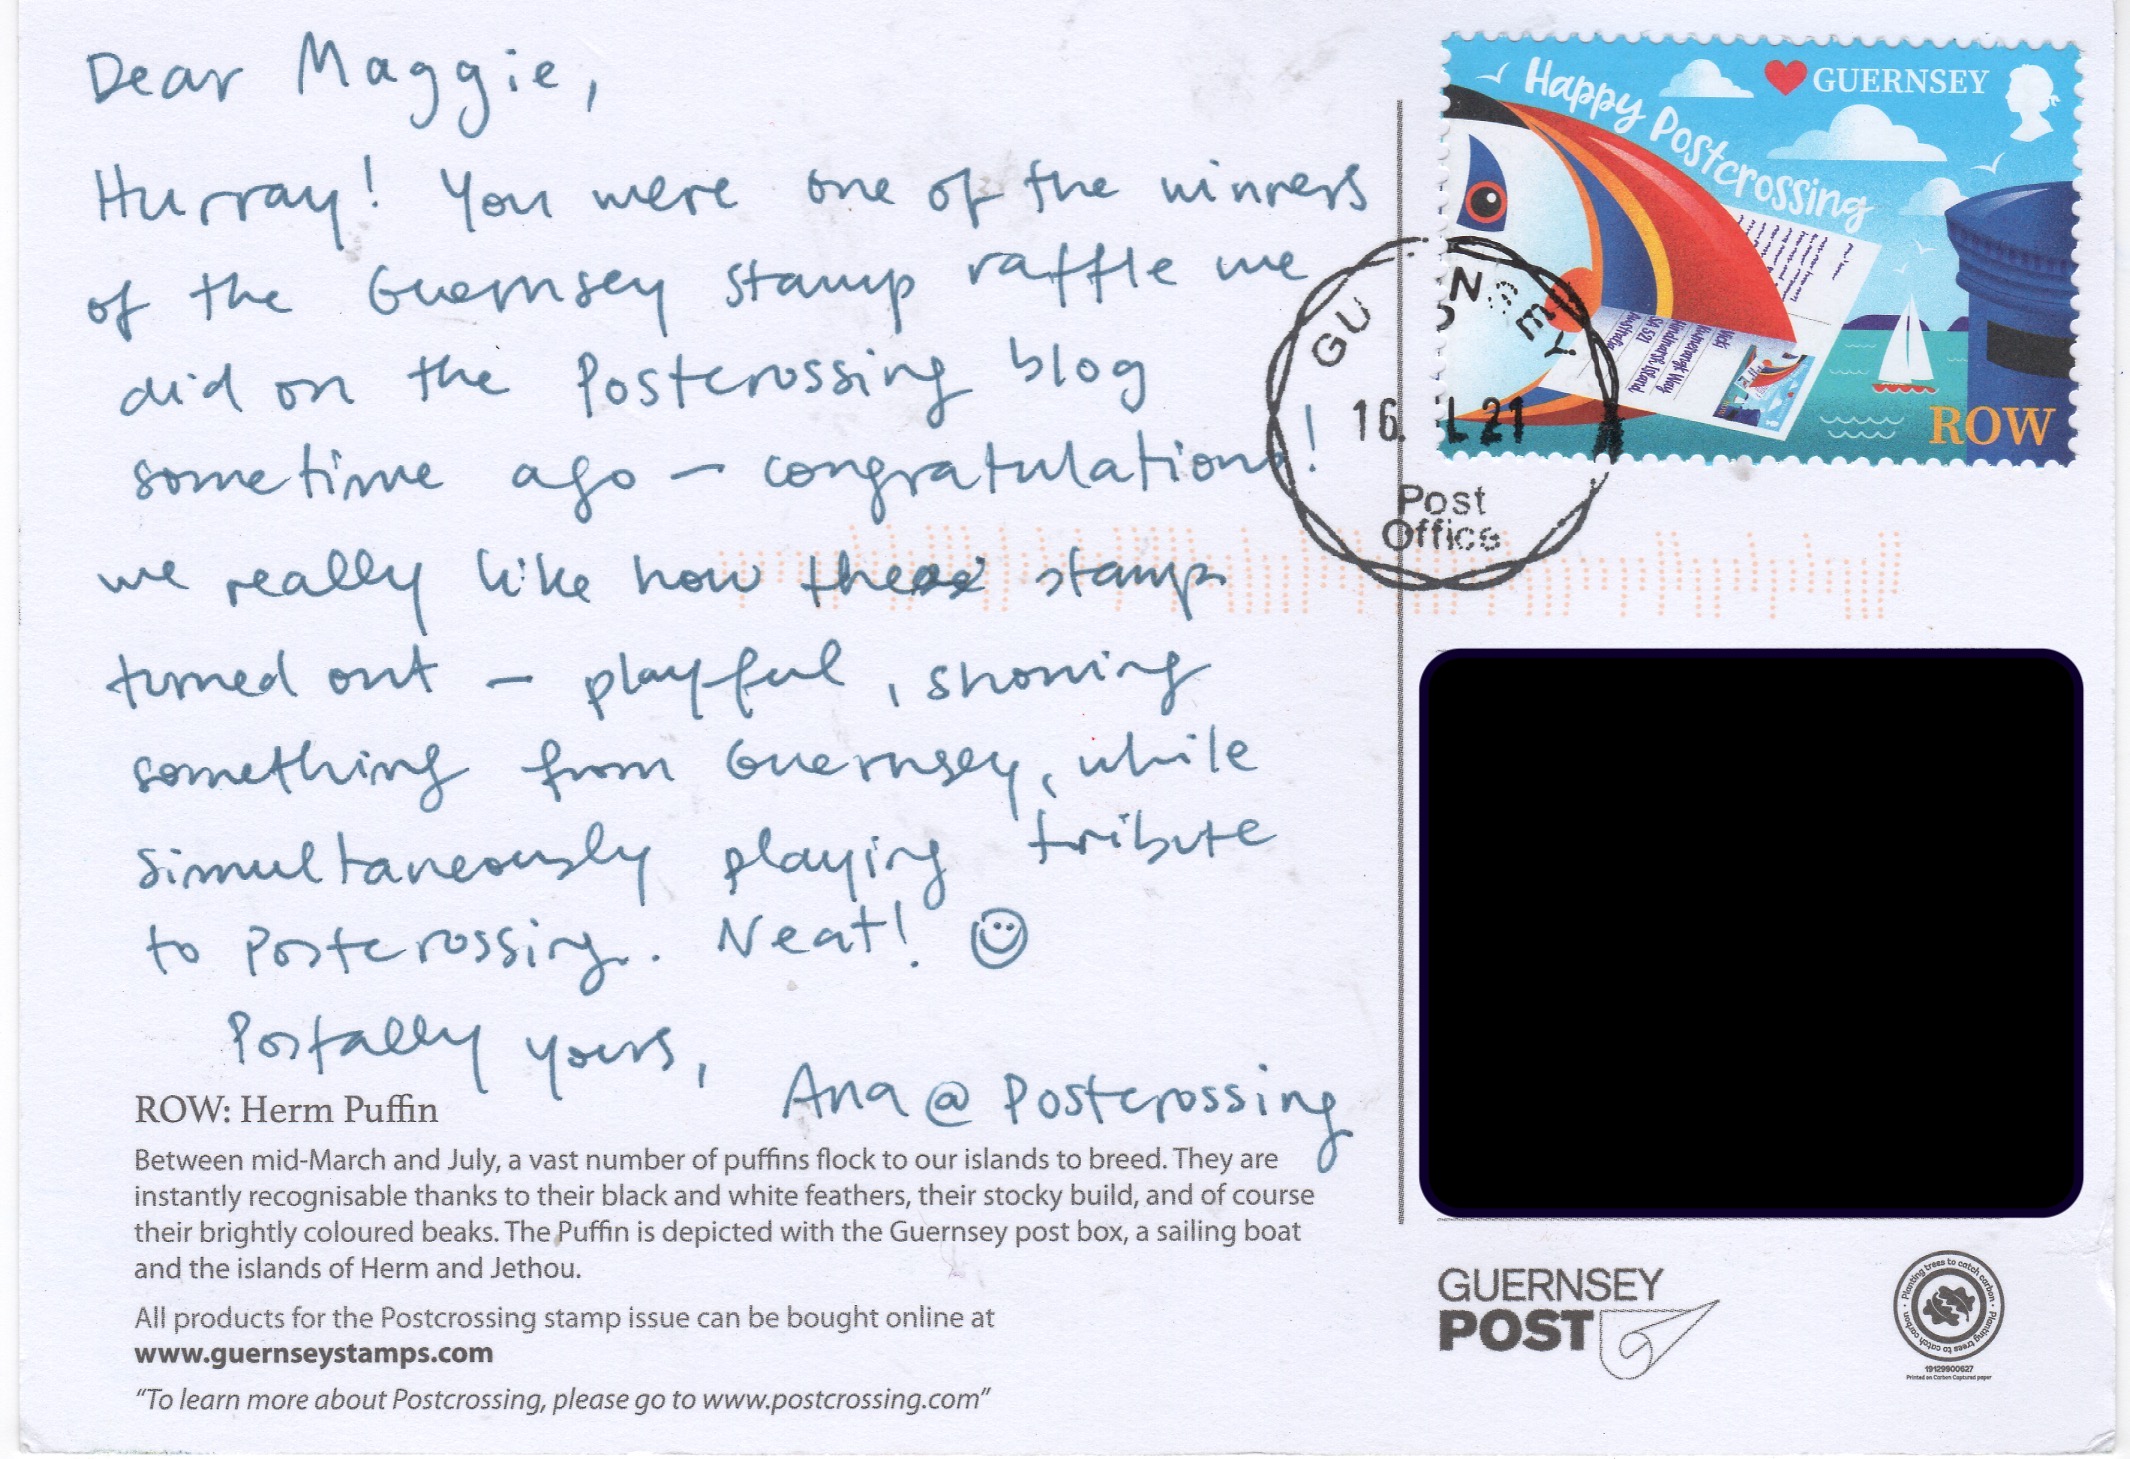 Dear Maggie,
Hurray! You were one of the winners
of the Guernsey stamp raffle we
did on the Postcrossing blog
sometime ago – congratulations!
we really like how these stamps
turned out – playful, showing
something from Guernsey, while
simultaneously playing tribute
to Postcrossing. Neat! ☺
Postally yours,
Ana @ Postcrossing
ROW: Herm Puffin
Between mid-March and July, a vast number of puffins flock to our islands to breed. They are
instantly recognisable thanks to their black and white feathers, their stocky build, and of course
their brightly coloured beaks. The Puffin is depicted with the Guernsey post box, a sailing boat
and the islands of Herm and Jethou.
All products for the Postcrossing stamp issue can be bought online at
www.guernseystamps.com
"To learn more about Postcrossing, please go to www.postcrossing.com"
Happy Postcrossing
GUERNSEY
ROW
GU NSEY
16. L 21
Post
Office
Hindmarsh Island
SA 521
Australia
GUERNSEY
POST
Planting trees to catch carbon • Planting trees to catch carbon •
19129900627
Printed on Carbon Captured paper